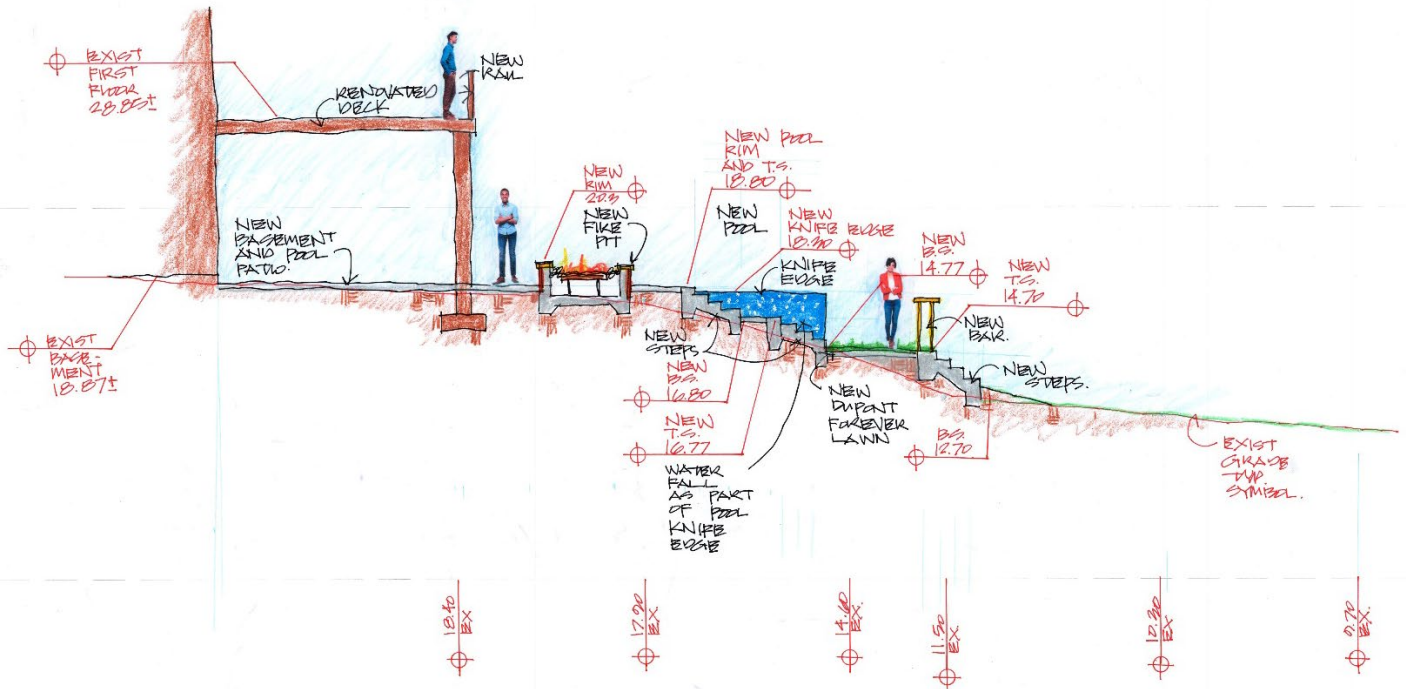 EXIST
FIRST
FLOOR
28.85±
RENOVATED
DECK
NEW
RAIL
NEW
BASEMENT
AND POOL
PATIO.
EXIST
BASE-
MENT
18.87±
NEW
RIM
20.3
NEW
FIRE
PIT
NEW POOL
RIM
AND T.S.
18.80
NEW
POOL
NEW
KNIFE EDGE
18.30
KNIFE
EDGE
NEW
B.S.
14.77
NEW
T.S.
14.70
NEW
BAR.
NEW
STEPS.
NEW
STEPS
NEW
B.S.
16.80
NEW
T.S.
16.77
WATER
FALL
AS PART
OF POOL
KNIFE
EDGE
NEW
DUPONT
FOREVER
LAWN
B.S.
12.70
EXIST
GRADE
TYP
SYMBOL.
18.40
EX
17.90
EX.
14.60
EX.
11.50
EX.
10.30
EX
9.70
EX.